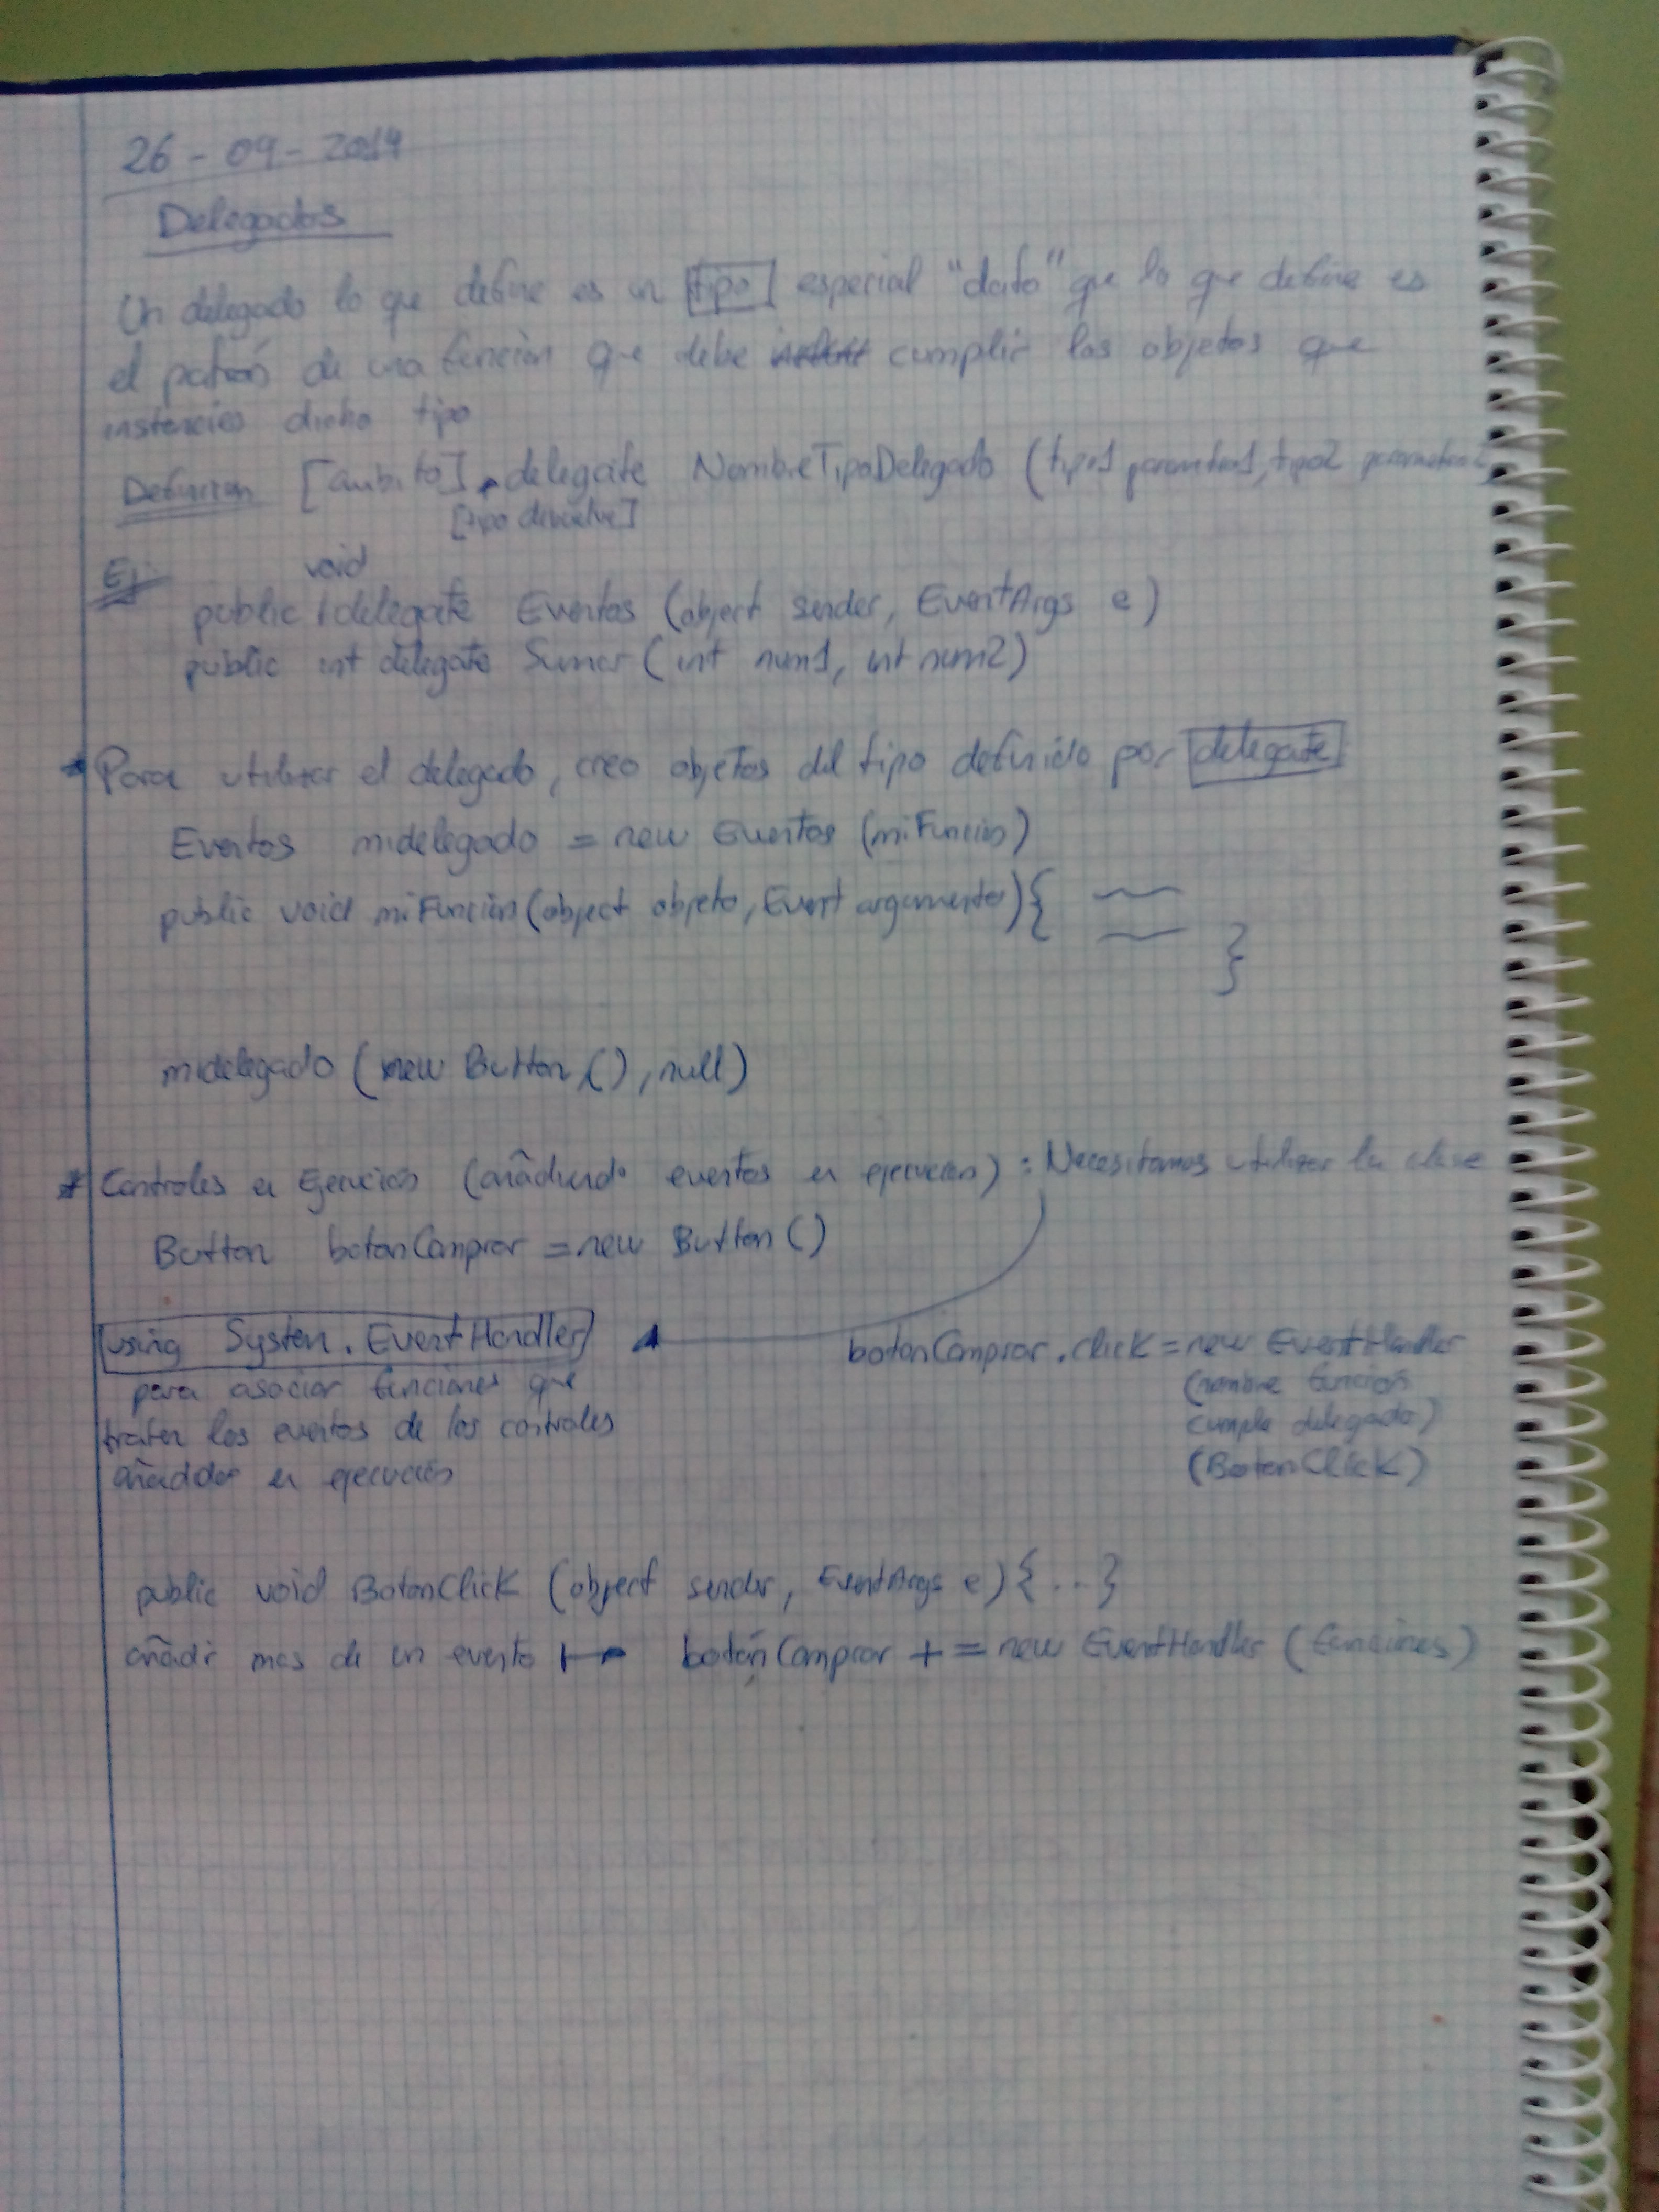 26-09-2014
Delegados
Un delegado lo que define es un tipo especial "dato" que lo que define es
el patrón de una función que debe cumplir los objetos que
instancien dicho tipo
Definicion [ambito] delegate NombreTipoDelegado (tipo1 parametro1, tipo2 parametro2
[tipo devuelve]
Ej:
void
public delegate Eventos (object sender, EventArgs e)
public int delegate Sumar (int num1, int num2)
* Para utilizar el delegado, creo objetos del tipo definido por delegate
Eventos midelegado = new Eventos (miFuncion)
public void miFunción (object objeto, Event argumento) {
}
midelegado (new Button (), null)
* Controles en Ejecución (añadiendo eventos en ejecución) : Necesitamos utilizar la clase
Button botonComprar = new Button ()
using System.EventHandler
botonComprar.click = new EventHandler
para asociar funciones que
(nombre función
traten los eventos de los controles
cumple delegado)
añadidos en ejecución
(BotonClick)
public void BotonClick (object sender, EventArgs e) {...}
añadir mas de un evento → botónComprar += new EventHandler (funciones)